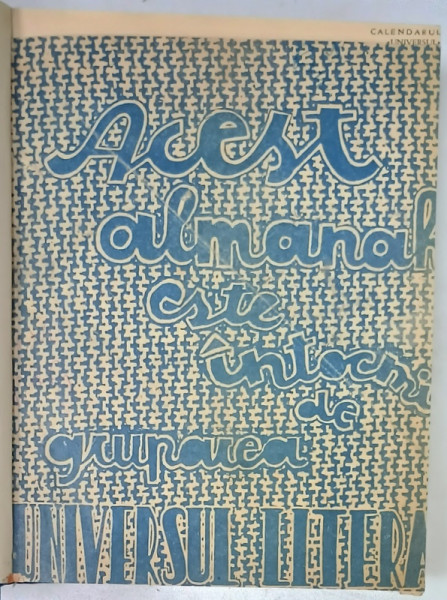 CALENDARUL
UNIVERSUL
Acest
almanah
este
întocmi
de
gruparea
UNIVERSUL LITERA